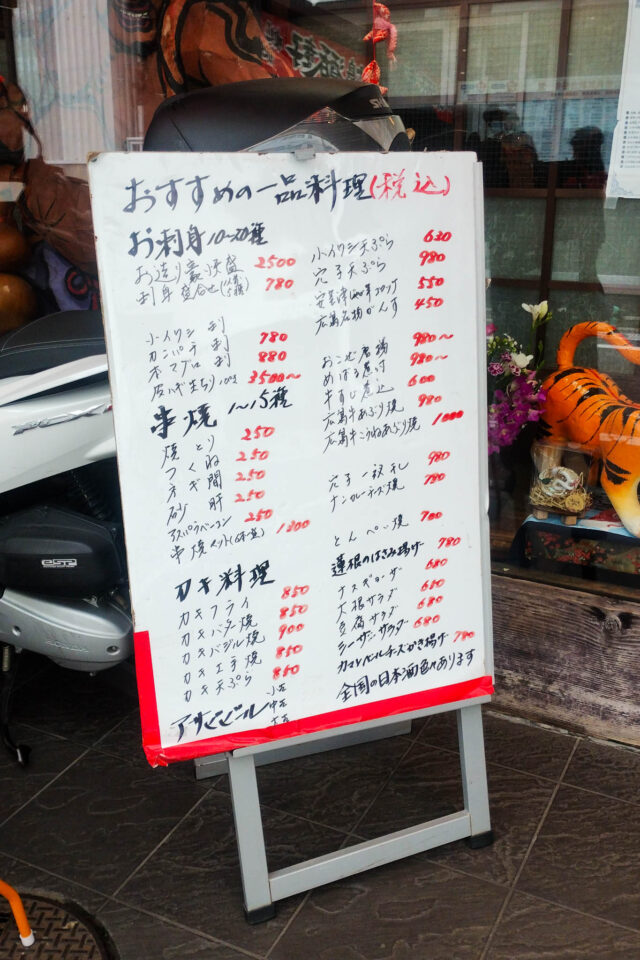 おすすめの一品料理(税込)
お刺身10~20種
お造り豪快盛 2500
刺身盛合せ 780
小イワシ刺 780
カンパチ刺 880
本マグロ刺
皮ハギ 3500~
串焼 1~15種
焼とり 250
つくね 250
ネギ間 250
砂肝 250
アスパラベーコン 250
串焼セット 1300
カキ料理
カキフライ 850
カキバター焼 850
カキバジル焼 900
カキ玉子焼 850
カキ天ぷら 850
アサヒビール 小¥ 中¥ 大¥
小イワシ天ぷら 630
穴子天ぷら 980
550
広島名物がんす 450
おこぜ唐揚 980~
めばる煮付 980~
牛すじ煮込 600
広島牛あぶり焼 980
広島牛こうねあぶり焼 1000
穴子一夜干し 980
ナンカレーチーズ焼 780
とんぺい焼 700
蓮根のはさみ揚げ 780
680
大根サラダ 680
豆腐サラダ 680
シーザーサラダ 680
カマンベールチーズかき揚げ 780
全国の日本酒色々あります